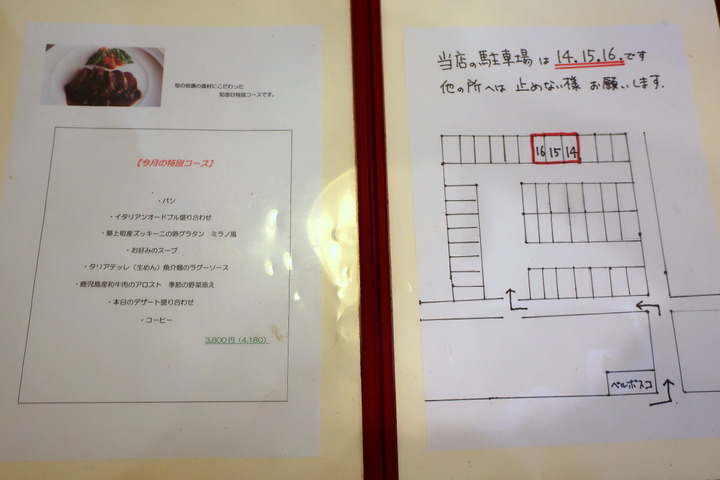 旬の地場の食材にこだわった
記念日特別コースです。
【今月の特別コース】
・パン
・イタリアンオードブル盛り合わせ
・築上町産ズッキーニの卵グラタン ミラノ風
・お好みのスープ
・タリアテッレ（生めん）魚介類のラグーソース
・鹿児島産和牛肉のアロスト 季節の野菜添え
・本日のデザート盛り合わせ
・コーヒー
3,800円（4,180）
当店の駐車場は 14.15.16.です
他の所へは 止めない様 お願いします.
16 15 14
ベルボスコ